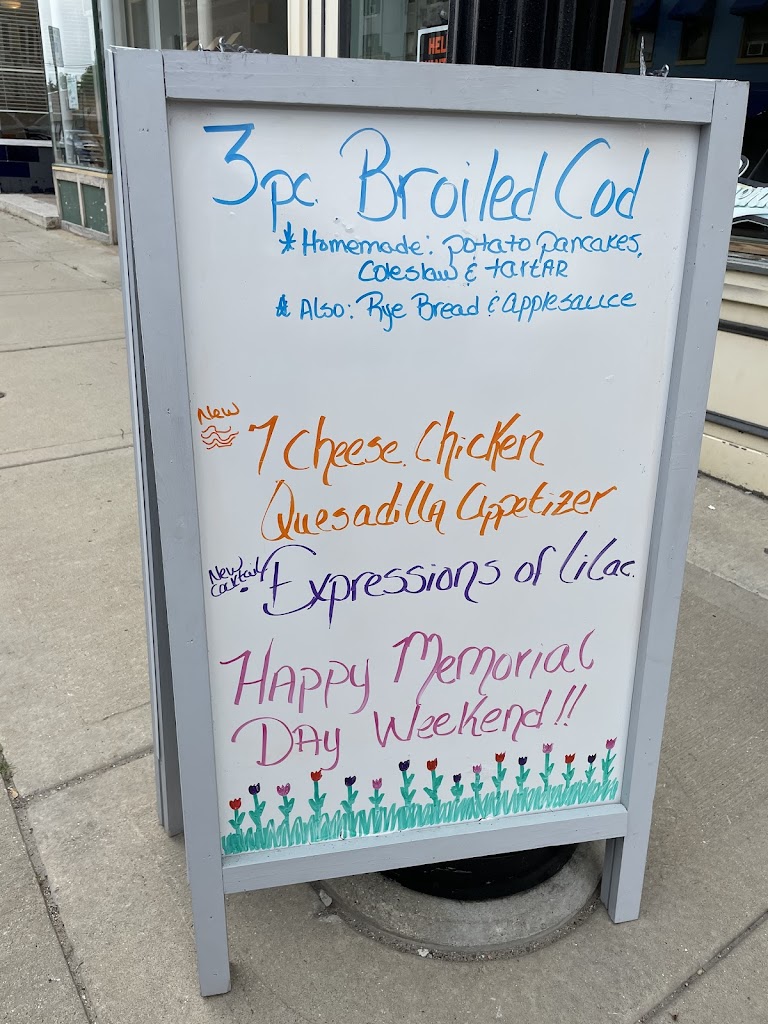 HEL
3 pc. Broiled Cod
* Homemade: potato pancakes,
Coleslaw & tartAR
* Also: Rye Bread & applesauce
New
7 Cheese Chicken
Quesadilla Appetizer
New
Cocktail
Expressions of Lilac
HAPPY Memorial
DAY Weekend!!